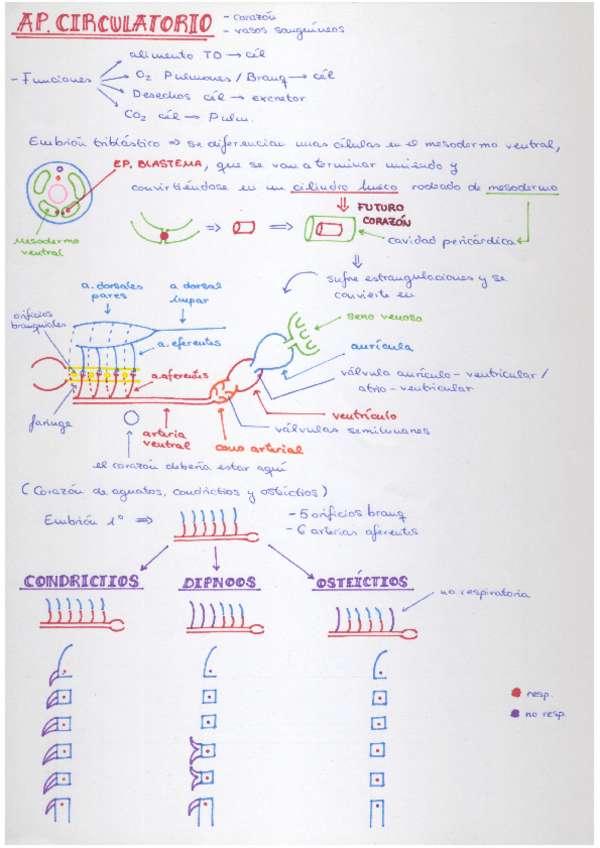 AP. CIRCULATORIO
- corazón
- vasos sanguíneos
- Funciones
alimento TD → cél
O2 Pulmones / Branq → cél
Desechos cél → excretor
CO2 cél → Pulm.
Embrión triblástico ⇒ se diferencian unas células en el mesodermo ventral,
EP. BLASTEMA, que se van a terminar uniendo y
convirtiéndose en un cilindro hueco rodeado de mesodermo
FUTURO
CORAZÓN
mesodermo
ventral
cavidad pericárdica
sufre estrangulaciones y se
convierte en
a. dorsales
pares
a. dorsal
impar
orificios
branquiales
a. eferentes
a. aferentes
faringe
arteria
ventral
seno venoso
aurícula
válvula aurículo-ventricular /
atrio-ventricular
ventrículo
válvulas semilunares
cono arterial
el corazón debería estar aquí
(Corazón de agnatos, condrictios y osteíctios)
Embrión 1º ⇒
- 5 orificios branq
- 6 arterias aferentes
CONDRICTIOS
DIPNOOS
OSTEÍCTIOS
no respiratoria
resp.
no resp.